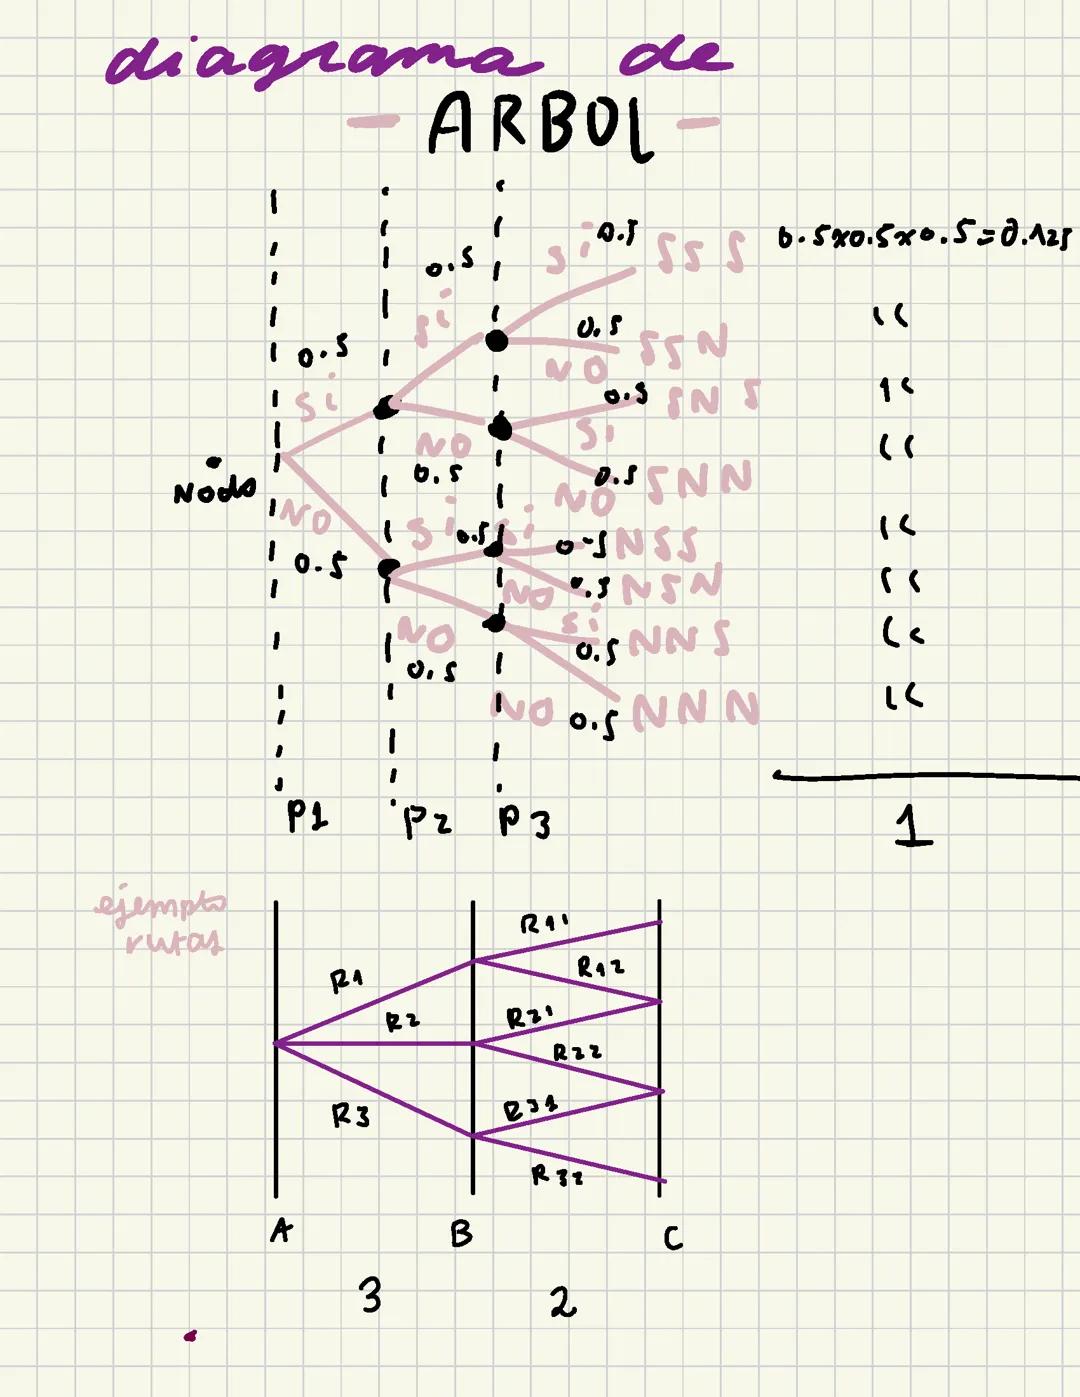 diagrama de
- ARBOL -
0.5 si 0.5 SSS 0.5x0.5x0.5=0.125
0.5 si 0.5 NO SSN "
0.5 si NO 0.5 si SNS "
Nodo 0.5 0.5 NO SNN "
NO si 0.5 si 0.5 NSS "
0.5 NO 0.5 NSN "
NO 0.5 si 0.5 NNS "
NO 0.5 NNN "
P1 P2 P3 1
ejemplo
rutas
R11
R1 R12
R2 R21
R22
R3 R31
R32
A B C
3 2